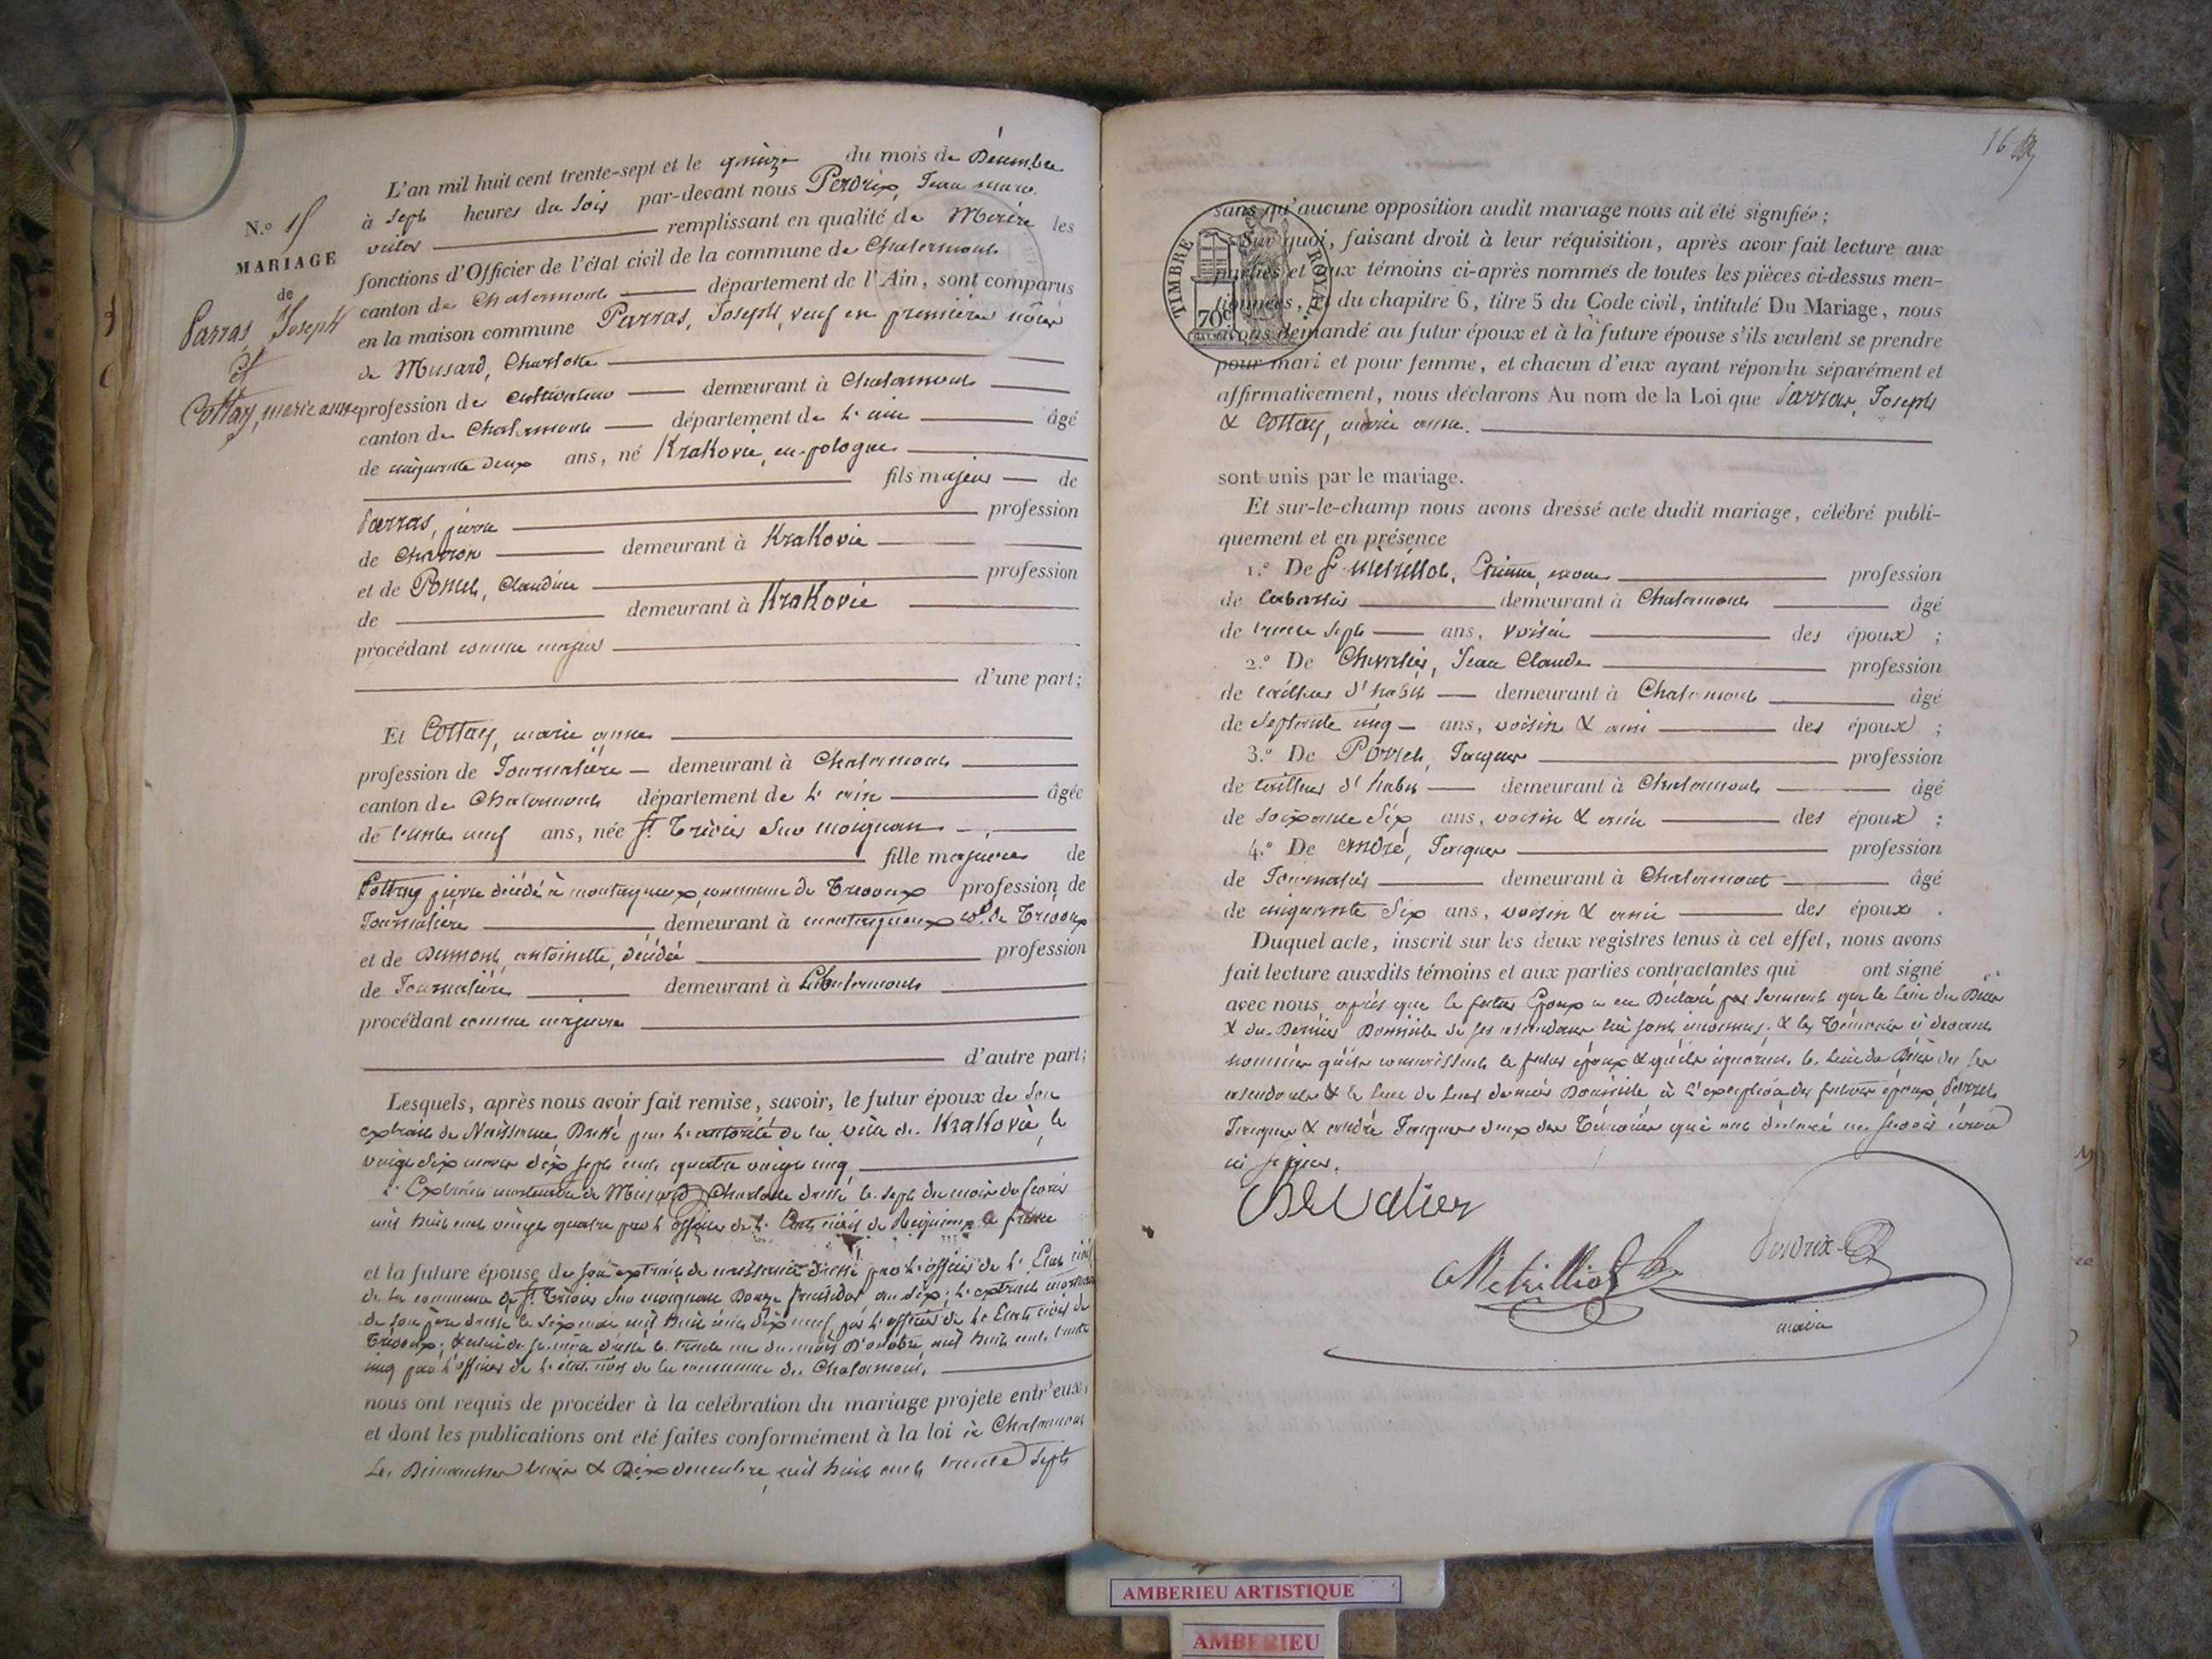 L'an mil huit cent trente-sept et le quinze du mois de Décembre
à sept heures du soir par-devant nous Perdrix, Jean marie
remplissant en qualité de Maire les
fonctions d'Officier de l'état civil de la commune de Chalamont
canton de Chalamont département de l'Ain, sont comparus
en la maison commune Parras, Joseph, veuf en premières nôces
de Musard, Charlotte
profession de cultivateur demeurant à Chalamont
canton de Chalamont département de l'ain âgé
de cinquante deux ans, né Krakovie, en pologne
fils majeur de
Parras, pierre profession
de Charron demeurant à Krakovie
et de Claudine profession
de demeurant à Krakovie
procédant comme majeur
d'une part;
N.° 15
MARIAGE
de
Parras, Joseph
et
Cottay, marie anne
Et Cottay, marie anne
profession de Journalière demeurant à Chalamont
canton de Chalamont département de l'ain âgée
de trente neuf ans, née St. Trivier sur moignans
fille majeure de
Cottay pierre décédé à montagneux, commune de Trevoux profession de
Journalière demeurant à montagneux de Trevoux
et de Dumont, antoinette, décédée profession
de Journalière demeurant à Chalamont
procédant comme majeure
d'autre part;
Lesquels, après nous avoir fait remise, savoir, le futur époux de son
extrait de Naissance Dressé par l'autorité de la ville de Krakovie le
vingt six mars dix sept cent quatre vingt cinq
L'Extrait mortuaire de Musard Charlotte dressé le sept du mois de
mil huit cent vingt quatre par l'officier de l'Etat civil de
et la future épouse de son extrait de naissance dressé par l'officier de l'Etat civil
de la commune de St. Trivier sur moignans Douze fructidor an six; l'extrait mortuaire
de son père dressé le six mai mil huit cent dix neuf par l'officier de l'Etat civil de
Trévoux; & celui de sa mère dressé le trente un du mois D'octobre mil huit cent trente
cinq par l'officier de l'état civil de la commune de Chalamont,
nous ont requis de procéder à la celébration du mariage projeté entr'eux,
et dont les publications ont été faites conformément à la loi à Chalamont
Les Dimanches trois & Dix décembre, mil huit cent trente sept
16
TIMBRE ROYAL
70c
sans qu'aucune opposition audit mariage nous ait été signifiée;
Sur quoi, faisant droit à leur réquisition, après avoir fait lecture aux
parties et aux témoins ci-après nommés de toutes les pièces ci-dessus men-
tionnées, et du chapitre 6, titre 5 du Code civil, intitulé Du Mariage, nous
avons demandé au futur époux et à la future épouse s'ils veulent se prendre
pour mari et pour femme, et chacun d'eux ayant répondu séparément et
affirmativement, nous déclarons Au nom de la Loi que Parras, Joseph
& Cottay, marie anne.
sont unis par le mariage.
Et sur-le-champ nous avons dressé acte dudit mariage, célébré publi-
quement et en présence
1.° De Métrillot, Etienne, profession
de demeurant à Chalamont âgé
de trente sept ans, voisin des époux;
2.° De Chevalier, Jean Claude profession
de tailleur d'habit demeurant à Chalamont âgé
de septante cinq ans, voisin & ami des époux;
3.° De Jacques profession
de tailleur d'habit demeurant à Chalamont âgé
de soixante six ans, voisin & ami des époux;
4.° De André, Jacques profession
de Journalier demeurant à Chalamont âgé
de cinquante six ans, voisin & ami des époux.
Duquel acte, inscrit sur les deux registres tenus à cet effet, nous avons
fait lecture auxdits témoins et aux parties contractantes qui ont signé
avec nous après que le futur Epoux a eu Déclaré par serment que le lieu du Décès
& du Dernier Domicile de ses ascendans lui sont inconnus, & les Témoins ci devant
nommés qu'ils connaissent le futur époux & qu'ils ignorent le lieu du Décès de ses
ascendants & le lieu de leur dernier Domicile à l'exception des futurs époux,
Jacques & andré Jacques deux des Témoins qui ont déclaré ne savoir écrire
ni signer.
Chevalier
Metrilliot
Perdrix
maire
AMBERIEU ARTISTIQUE
AMBERIEU